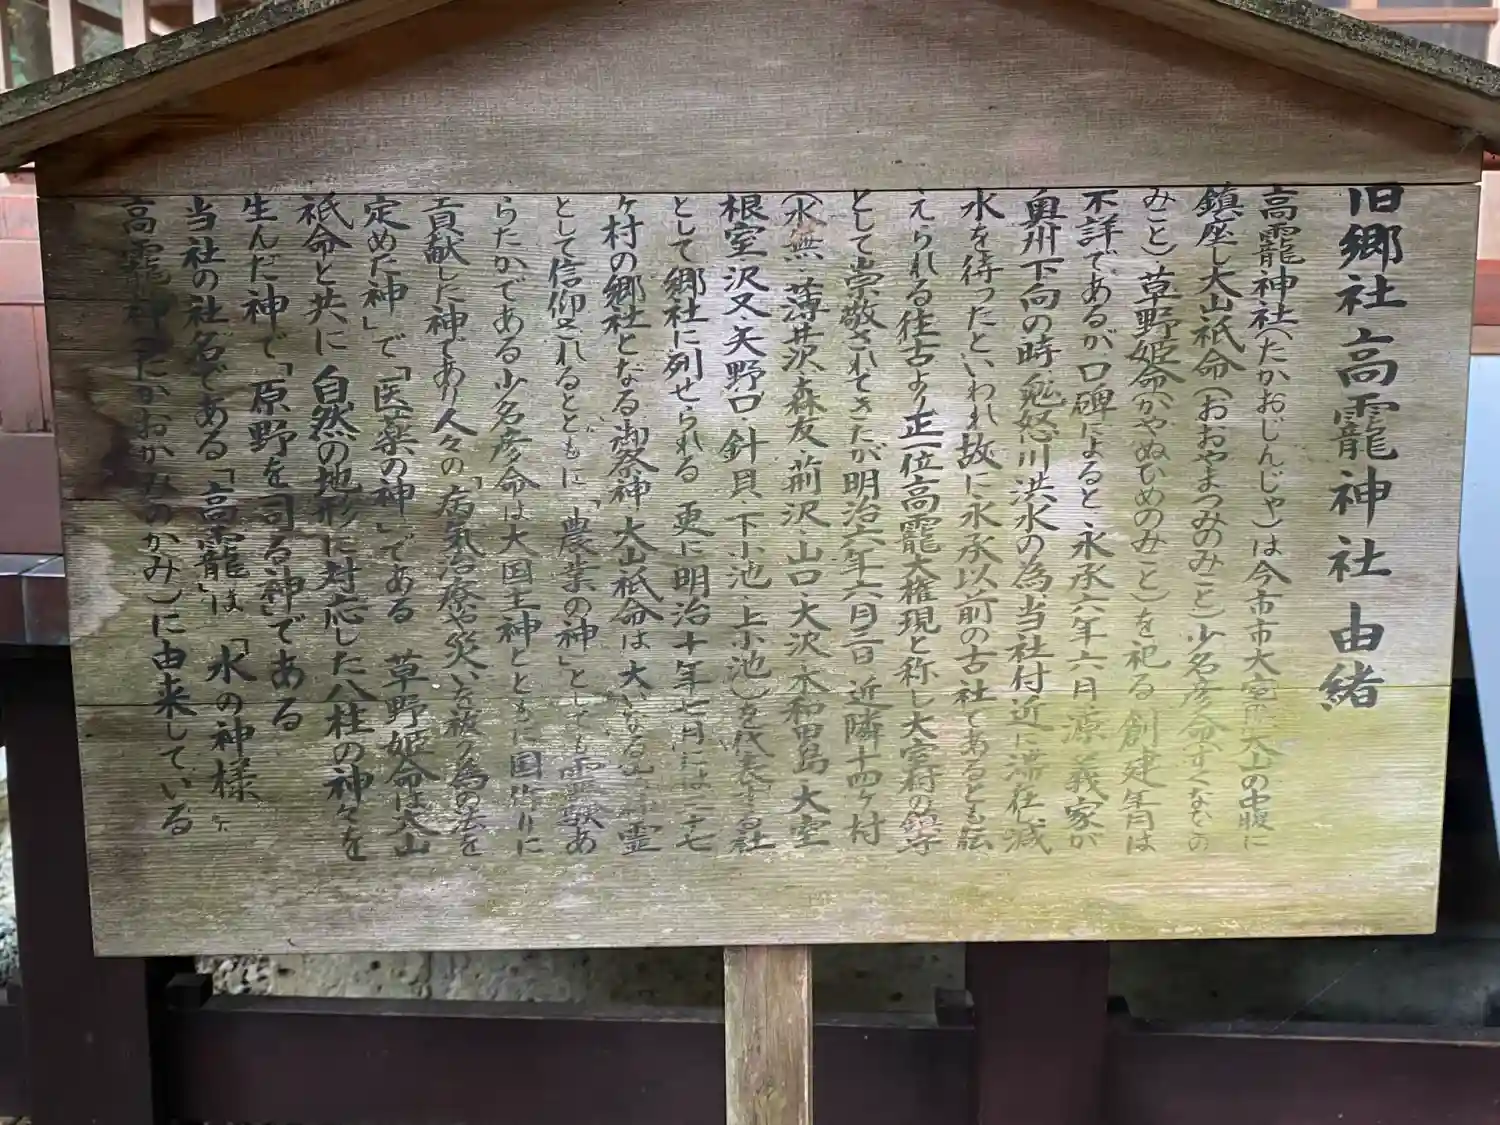 旧郷社高靇神社由緒
高靇神社(たかおじんじゃ)は今市市大室 大山の中腹に
鎮座し大山祇命(おおやまつみのみこと)少名彦命(すくなひの
みこと)・草野姫命(かやぬひめのみこと)を祀る 創建年月は
不詳であるが口碑によると永承六年六月 源義家が
奥州下向の時、鬼怒川洪水の為当社付近に滞在減
水を待ったといわれ故に永承以前の古社であるとも伝
えられる往古より正一位高靇大権現と称し大室村の鎮守
として崇敬されてきたが明治六年六月三日 近隣十四ヶ村
(水無・薄井沢・森友・荊沢・山口・大沢・木和田島・大室
根室・沢又・矢野口・針貝・下小池・上小池)を代表する社
として郷社に列せられる 更に明治十年七月には二十七
ヶ村の郷社となる御祭神 大山祇命は大いなる 霊
として信仰されるとともに「農業の神」としても霊験あ
らたかである少名彦命は大国主神とともに国作りに
貢献した神であり人々の「病気治療や災いを祓う為の法を
定めた神」で「医薬の神」である 草野姫命は大山
祇命と共に自然の地形に対応した八柱の神々を
生んだ神で「原野を司る神」である
当社の社名である「高靇」は「水の神様
高靇神(たかおかみのかみ)に由来している